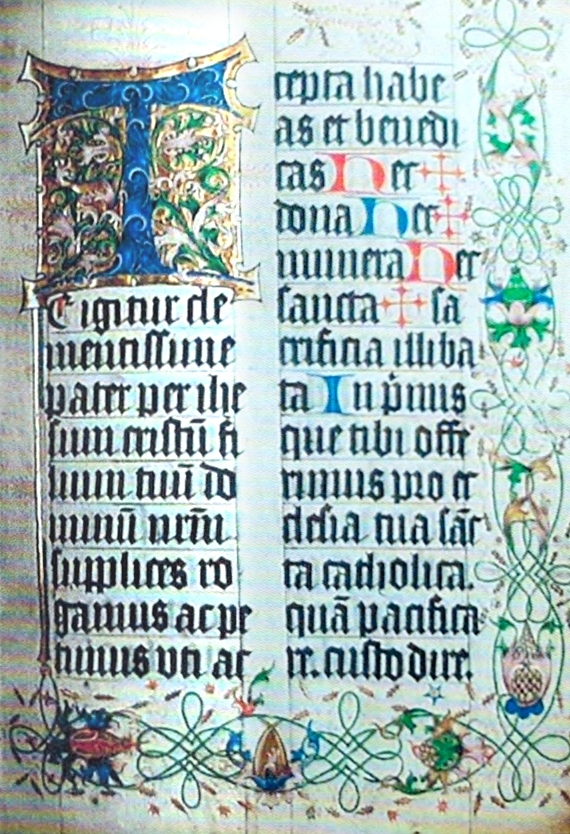 T
E igitur cle
mentissime
pater per ihe
sum cristū fi
lium tuū do
minū nrm̄
supplices ro
gamus ac pe
timus vti ac
cepta habe
as et benedi
cas Hec ✢
dona Hec ✢
munera Hec
sancta ✢ sa
crificia illiba
ta In p̄mis
que tibi offe
rimus pro ec
clesia tua sāc
ta catholica.
quā pacifica
re. custodire.